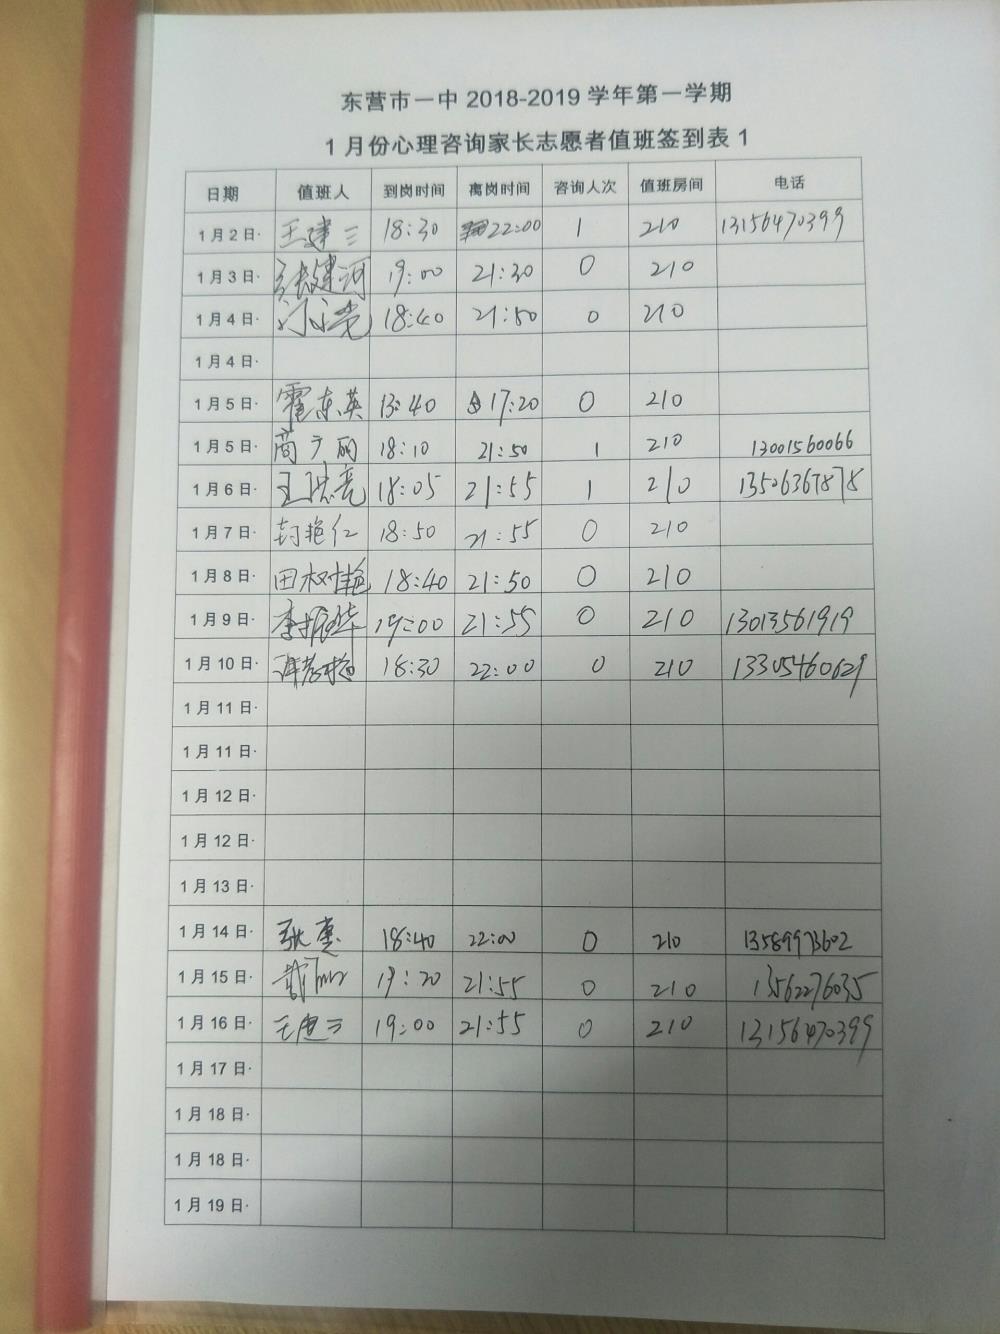 东营市一中 2018-2019 学年第一学期
1 月份心理咨询家长志愿者值班签到表 1
日期 值班人 到岗时间 离岗时间 咨询人次 值班房间 电话
1 月 2 日· 王建三 18:30 22:00 1 210 13156470399
1 月 3 日· 张建河 19:00 21:30 0 210
1 月 4 日· 18:40 21:50 0 210
1 月 4 日·
1 月 5 日· 霍东英 13:40 17:20 0 210
1 月 5 日· 商广丽 18:10 21:50 1 210 13001560066
1 月 6 日· 王洪亮 18:05 21:55 1 210 13506367878
1 月 7 日· 封艳仁 18:50 21:55 0 210
1 月 8 日· 田权艳 18:40 21:50 0 210
1 月 9 日· 李振华 19:00 21:55 0 210 13013561919
1 月 10 日· 18:30 22:00 0 210 13305460629
1 月 11 日·
1 月 11 日·
1 月 12 日·
1 月 12 日·
1 月 13 日·
1 月 14 日· 张惠 18:40 22:00 0 210 13589973602
1 月 15 日· 19:20 21:55 0 210 13562276035
1 月 16 日· 王建三 19:00 21:55 0 210 13156470399
1 月 17 日·
1 月 18 日·
1 月 18 日·
1 月 19 日·